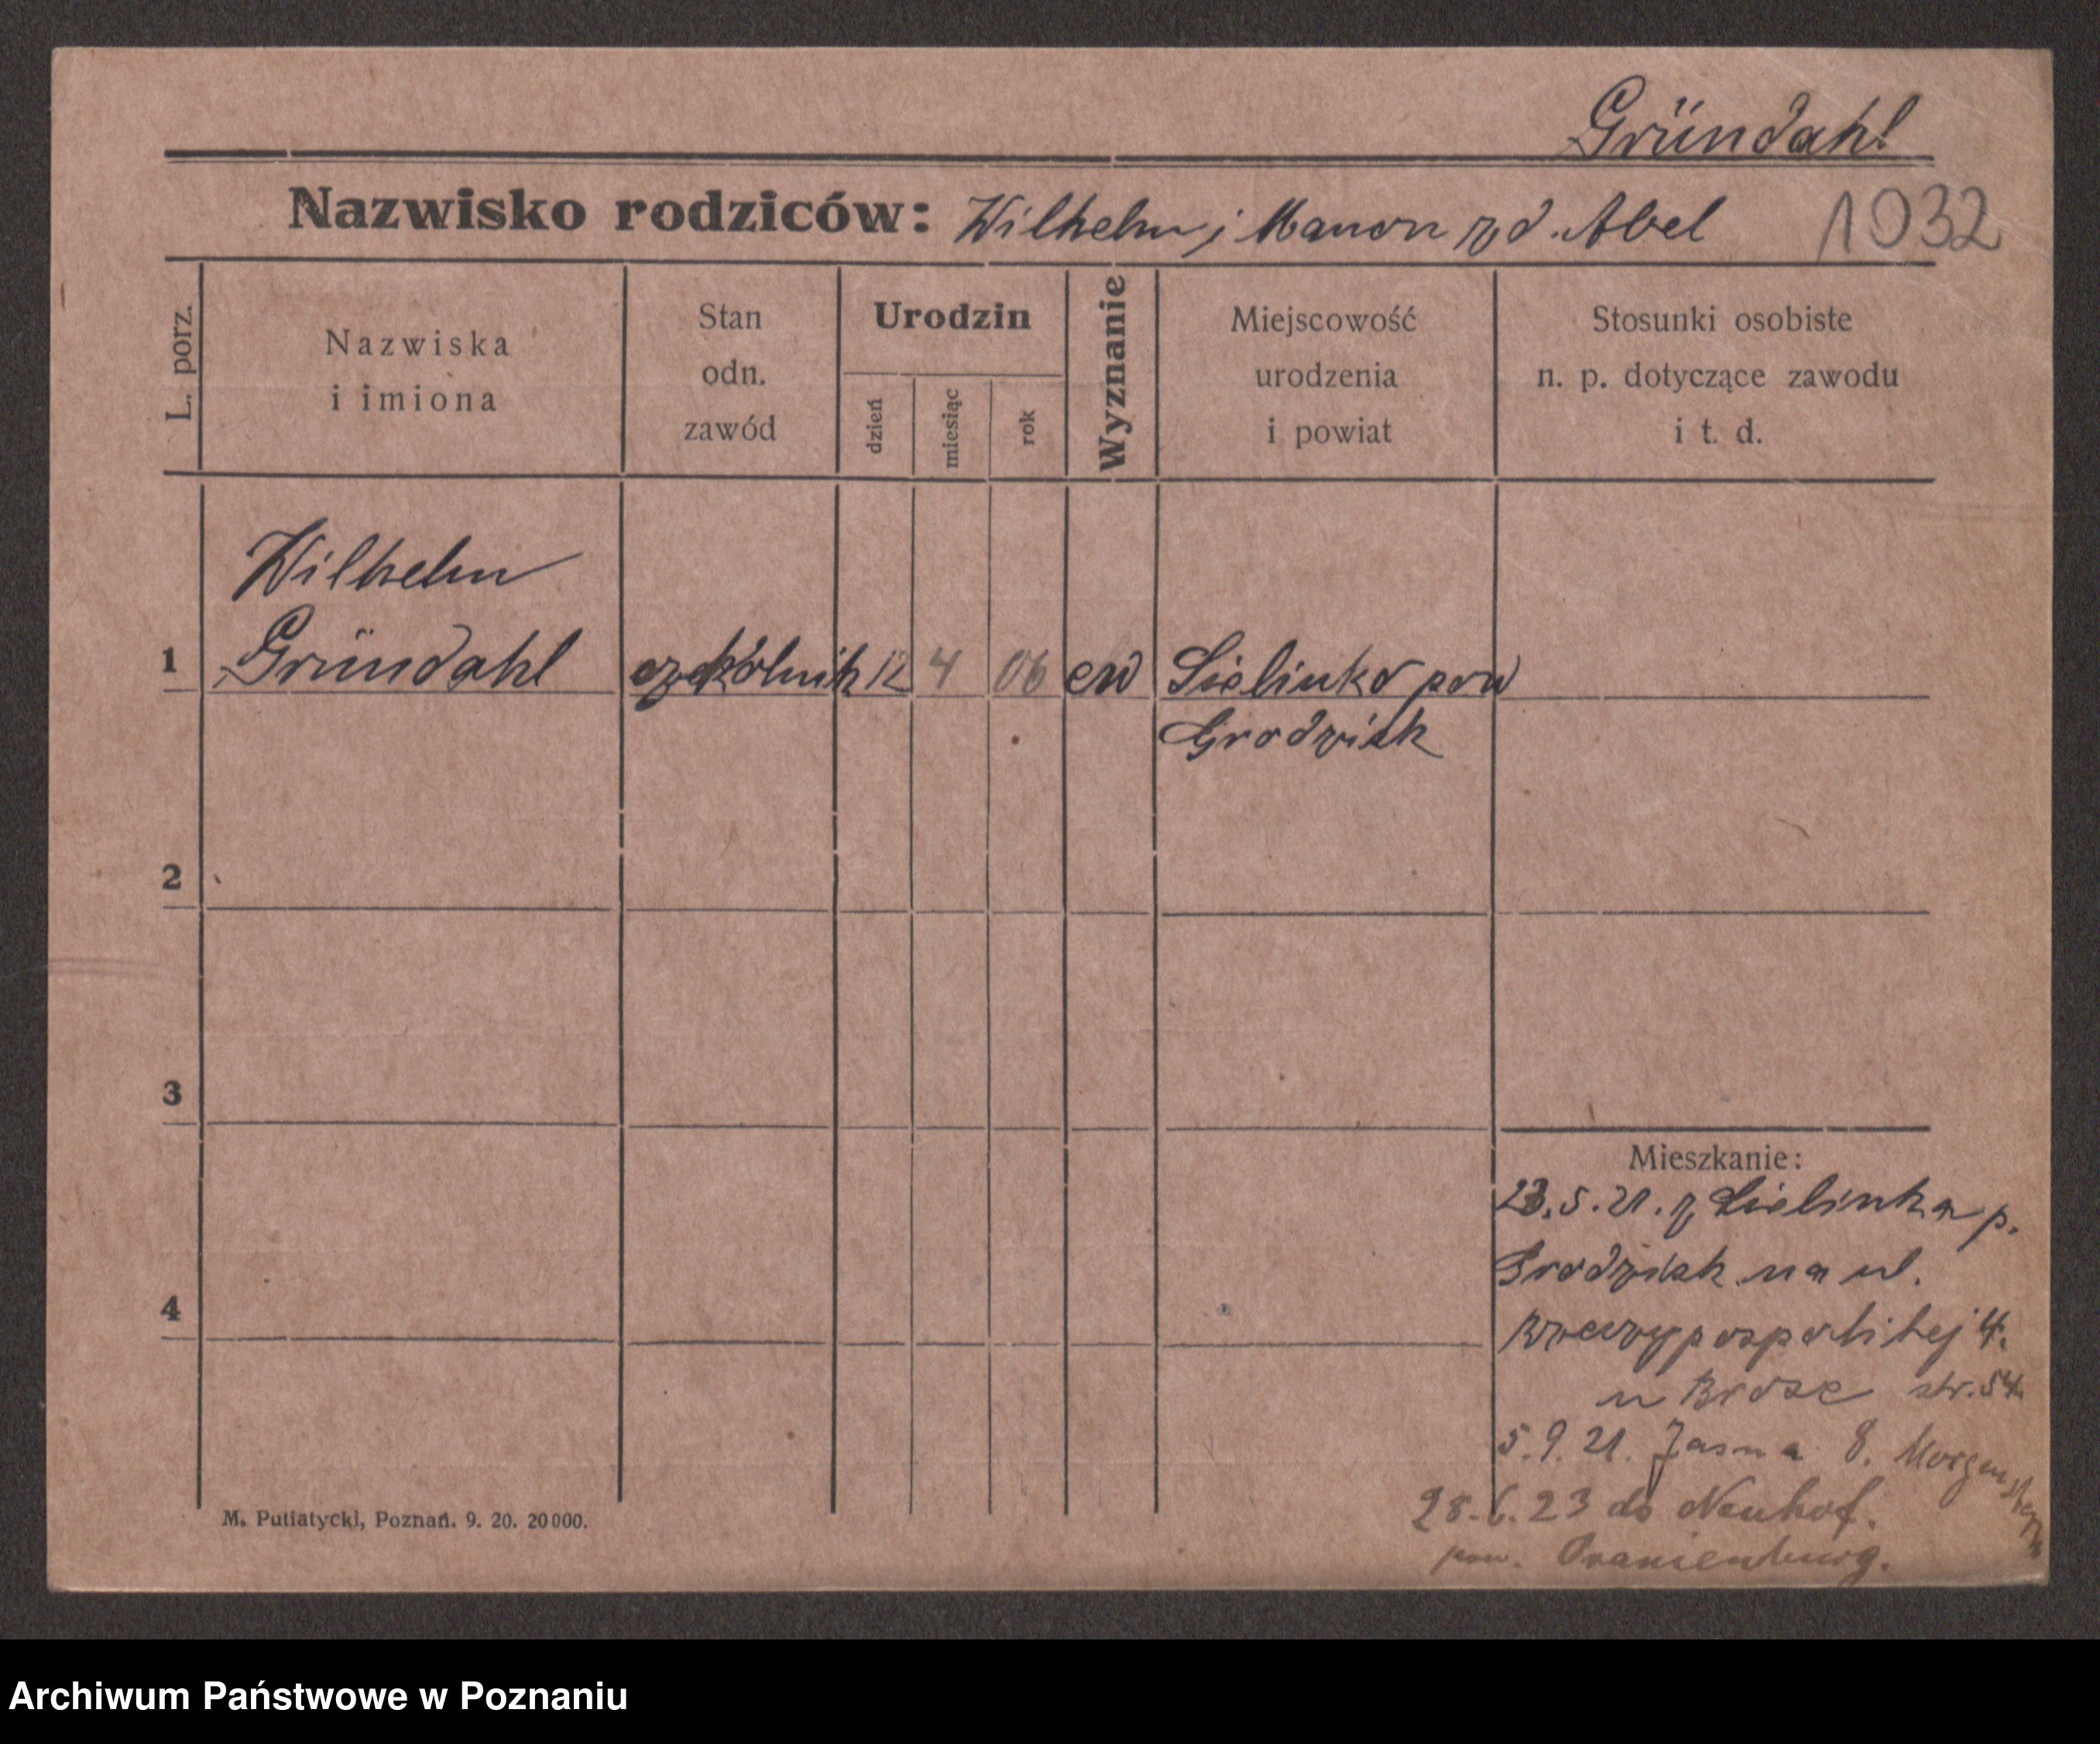 Gründahl
Nazwisko rodziców: Wilhelm i Manon zd. Abel 1032
L. porz.
Nazwiska
i imiona
Stan
odn.
zawód
Urodzin
dzień
miesiąc
rok
Wyznanie
Miejscowość
urodzenia
i powiat
Stosunki osobiste
n. p. dotyczące zawodu
i t. d.
Wilhelm
1 Gründahl 12 4 06 ew Sielinko pow
Grodzisk
2
3
4
Mieszkanie:
23.5.21. z Sielinka p.
Grodzisk na ul.
Rzeczypospolitej 4.
u Brose str. 54
5.9.21. Jasna 8. Morgenstern
28.6.23 do Neuhof.
pow. Oranienburg.
M. Putiatycki, Poznań. 9. 20. 20000.
Archiwum Państwowe w Poznaniu